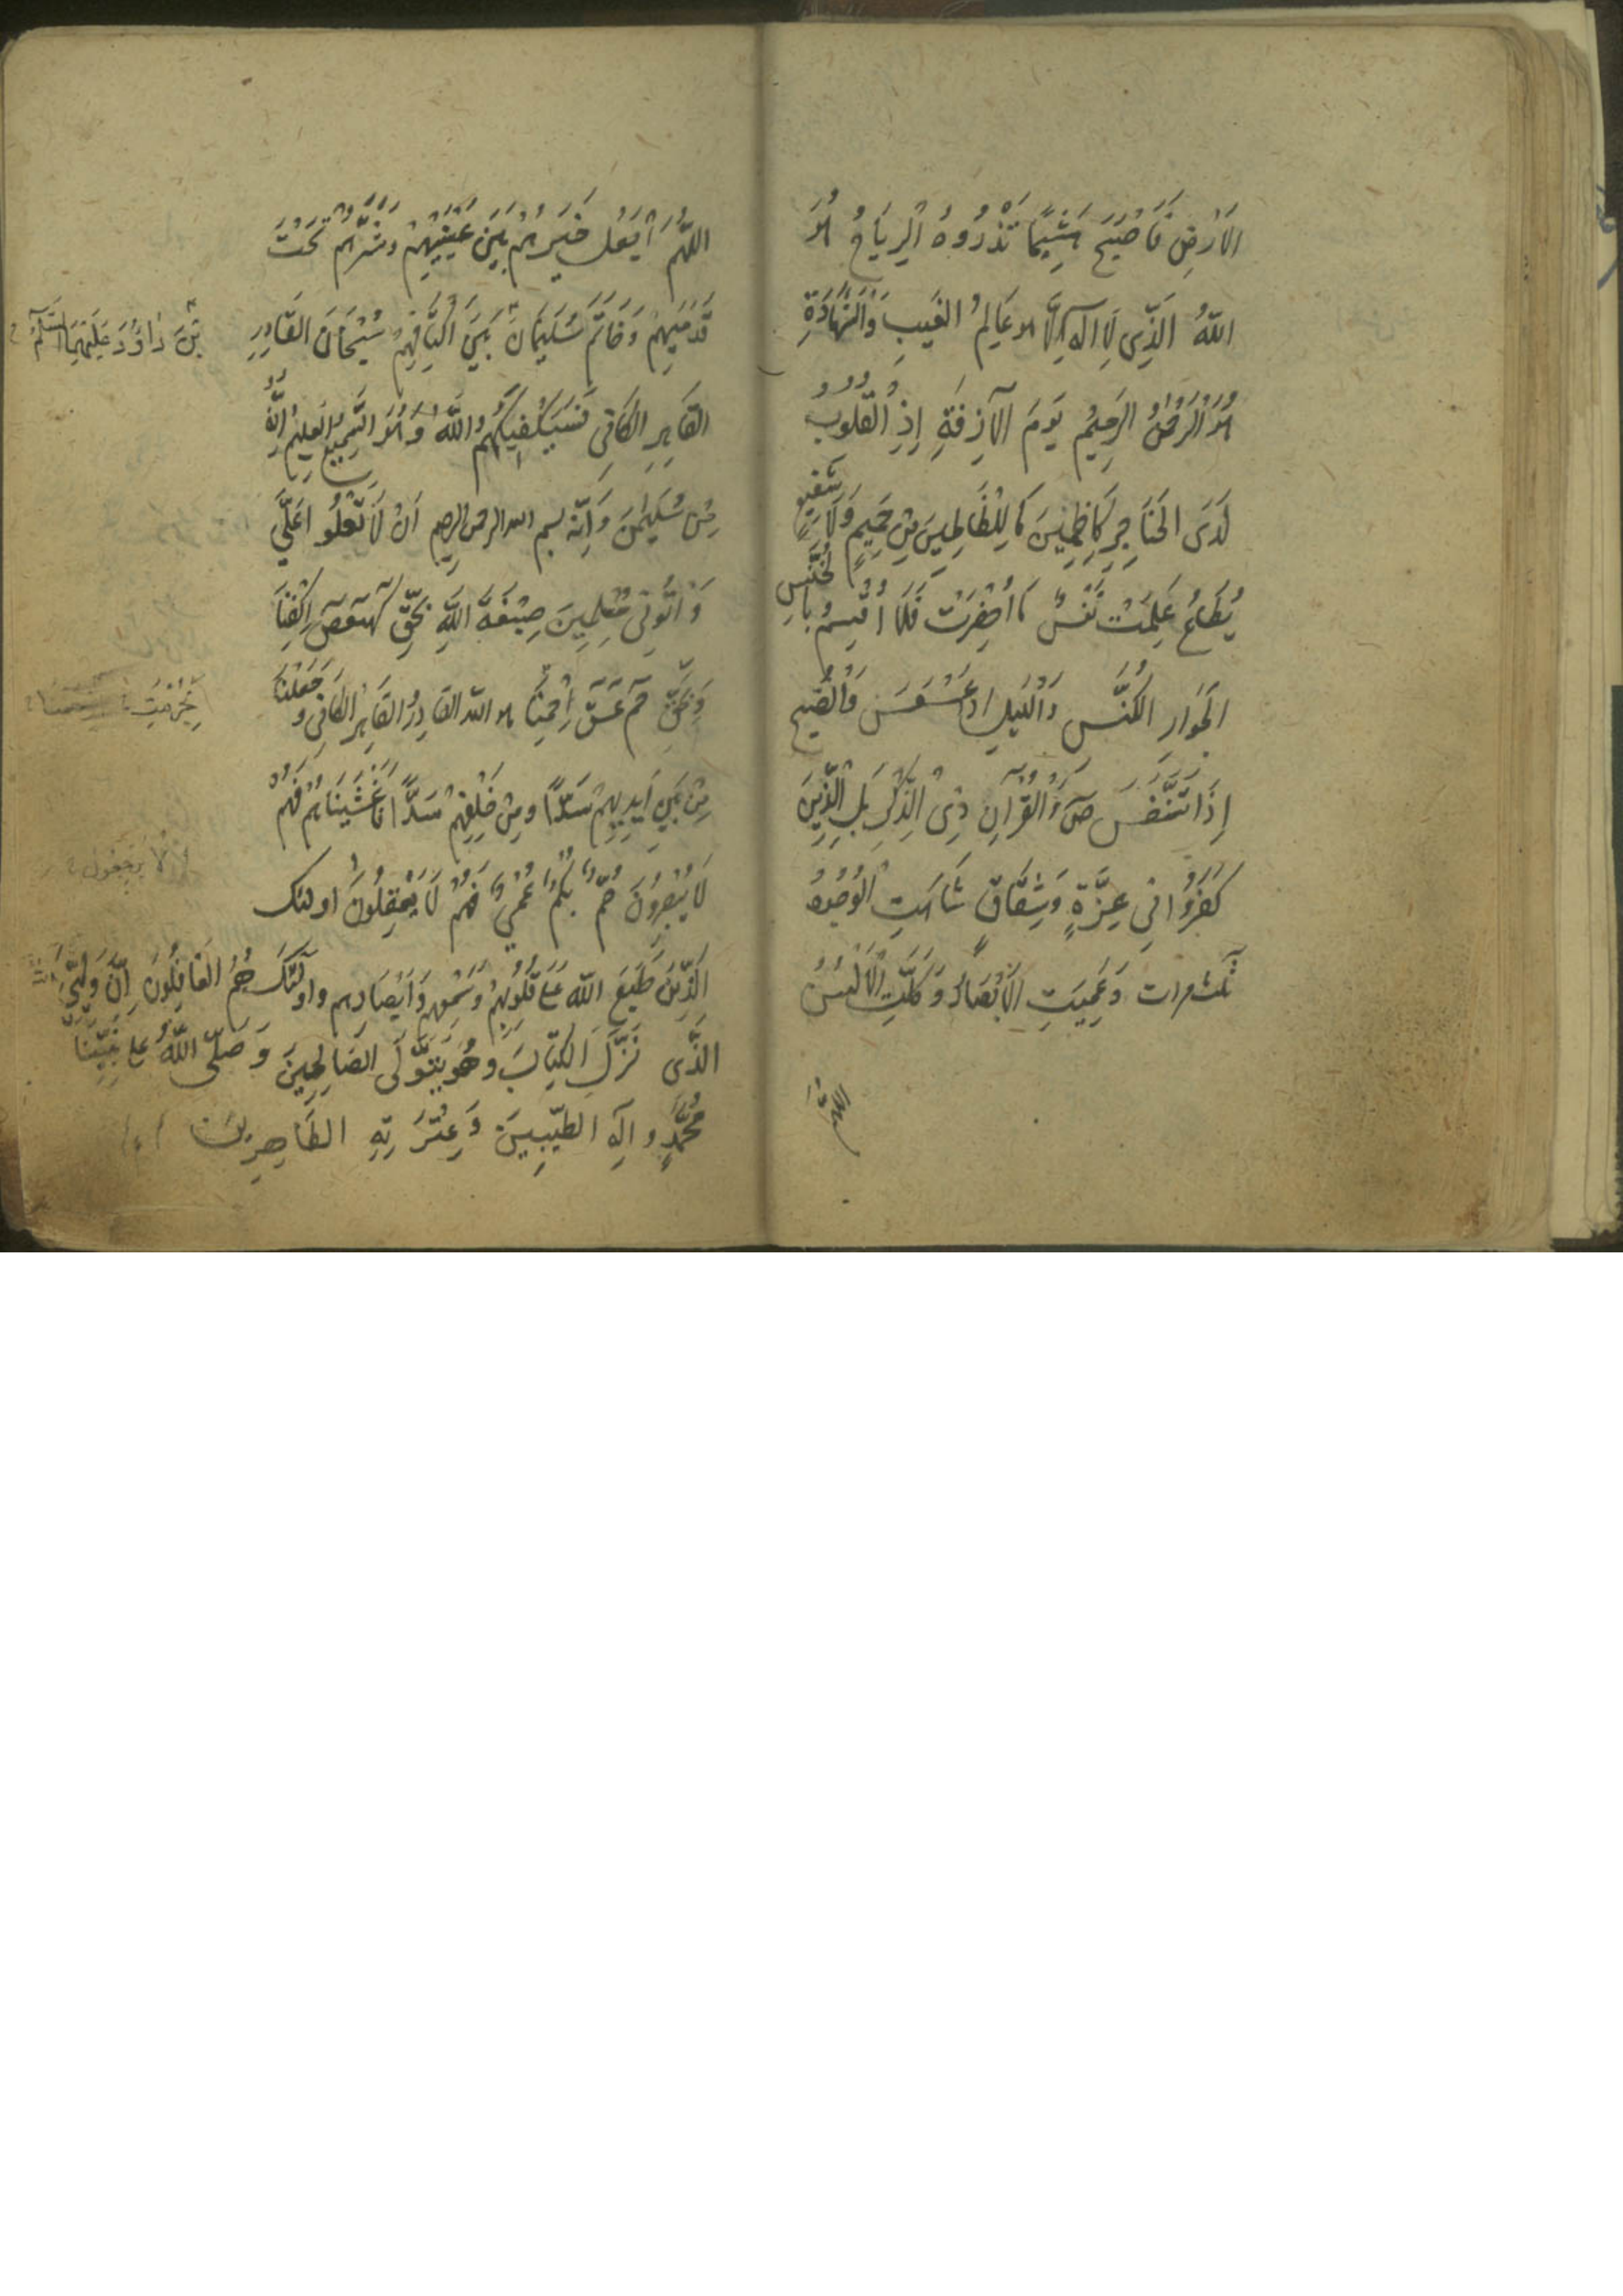 الاَرْضِ فَاَصْبَحَ هَشِيمًا تَذْرُوهُ الرِّيَاحُ هُوَ
اللّهُ الَّذِى لَا اِلَهَ اِلَّا هو عَالِمُ الغَيبِ وَالشَّهَادَةِ
هُوَ الرَّحْمنُ الرَّحِيمُ يَومَ الآزِفَةِ إِذِ القُلُوبُ
لَدَى الحَنَاجِرِ كَاظِمِينَ مَا لِلظَّالِمِينَ مِنْ حَمِيمٍ وَلَا شَفِيعٍ
يُطَاعُ عَلِمَتْ نَفْسٌ مَا اَحْضَرَتْ فَلَا اُقْسِمُ بِالخُنَّسِ
الجَوَارِ الكُنَّسِ وَالَّيلِ اذا عَسْعَسَ وَالصُّبحِ
إِذَا تَنَفَّسَ صَ وَالقُرْآنِ ذِى الذِّكْرِ بَلِ الَّذِينَ
كَفَرُوا فِى عِزَّةٍ وَشِقَاقٍ شَاهَتِ الوُجُوهُ
ثلث مرات وَعَمِيَتِ الاَبْصَارُ وَكَلَّتِ الاَلْسُنُ
اللّهُمَّ
اللّهُمَّ اجْعَل خَيرَهُمْ بَينَ عَينَيهِمْ وَشَرَّهُمْ تَحْتَ
قَدَمَيهِمْ وَخَاتَمَ سُلَيمَانَ بَينَ اَكْتَافِهِمْ سُبْحَانَ القَادِرِ
بْنَ دَاوُدَ عَلَيهِمَا السَّلَامُ
القَاهِرِ الكَافِى فَسَيَكْفِيكَهُمُ اللّهُ وَهُوَ السَّمِيعُ العَلِيمُ اِنَّهُ
مِنْ سُلَيمنَ وَاِنَّهُ بسم الله الرحمن الرحيم اَنْ لَا تَعْلُوا عَلَيَّ
وَاْتُونِى مُسْلِمِينَ صِبْغَةَ اللّهِ بِحَقِّ كهيعص اِكْفِنَا
وَبِحَقِّ حم عسق اِحْمِنَا هو اللّه القَادِرُ القَاهِرُ الكَافِى وَجَعَلْنَا
مِنْ بَينِ اَيدِيهِمْ سَدًّا وَمِنْ خَلْفِهِمْ سَدًّا فَاَغْشَينَاهُمْ فَهُمْ
لَا يُبْصِرُونَ صُمٌّ بُكْمٌ عُمْيٌ فَهُمْ لَا يَعْقِلُونَ اولئك
لا يرجعون
الَّذِينَ طَبَعَ اللّه عَلَى قُلُوبِهِمْ وَسَمْعِهِمْ وَاَبْصَارِهِم وَاولئِكَ هُمُ الغَافِلُونَ اِنَّ وَلِيِّيَ اللّه
الَّذِى نَزَّلَ الكِتَابَ وَهُوَ يَتَوَلَّى الصَالِحِينَ وَصَلّى اللّهُ عَلى نَبِيِّنَا
مُحَمَّدٍ وَ الِهِ الطَيِّبِينَ وَعِتْرَتِهِ الطَاهِرِينَ